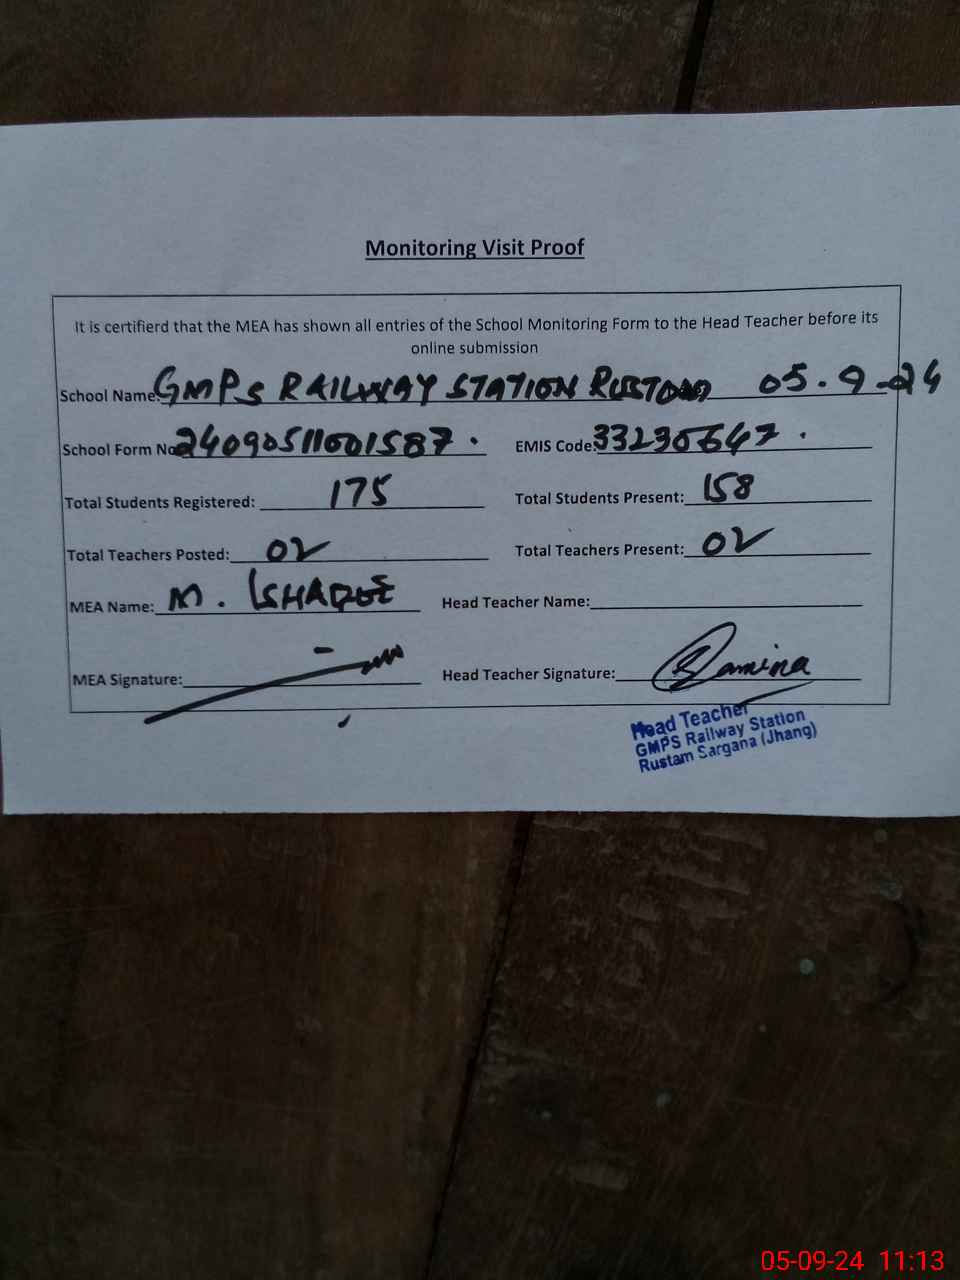 Monitoring Visit Proof
It is certifierd that the MEA has shown all entries of the School Monitoring Form to the Head Teacher before its
online submission
School Name: GMPS RAILWAY STATION 05.9-24
School Form No 24090511001587. EMIS Code: 33230647.
Total Students Registered: 175 Total Students Present: 158
Total Teachers Posted: 02 Total Teachers Present: 02
MEA Name: M. ISHAQUE Head Teacher Name:
MEA Signature: Head Teacher Signature: Samina
Head Teacher
GMPS Railway Station
Rustam Sargana (Jhang)
05-09-24 11:13